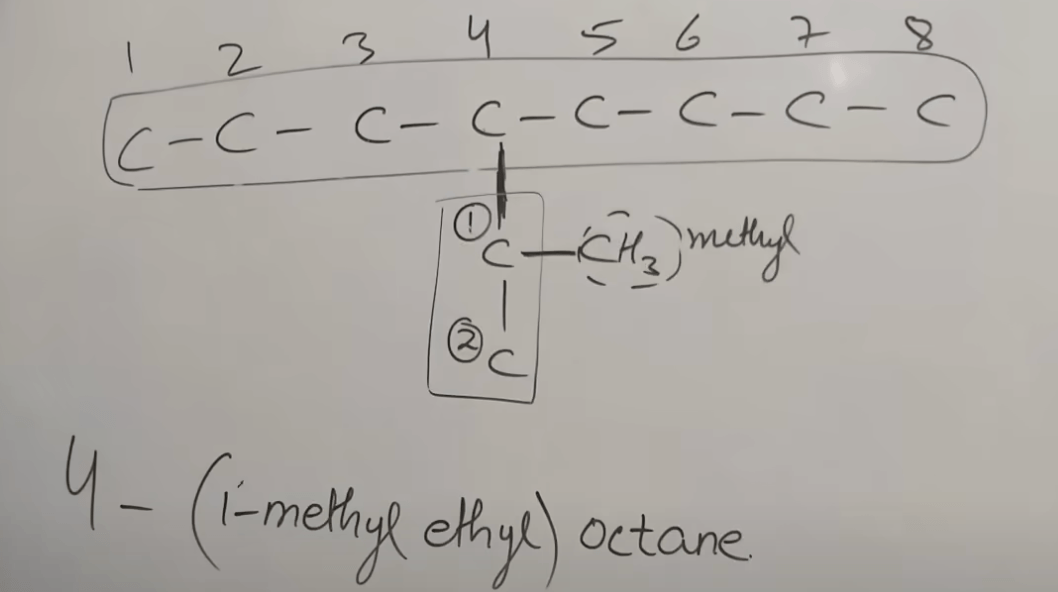 1 2 3 4 5 6 7 8
C - C - C - C - C - C - C - C
① C - (CH₃) methyl
② C
4 - (1-methyl ethyl) octane.